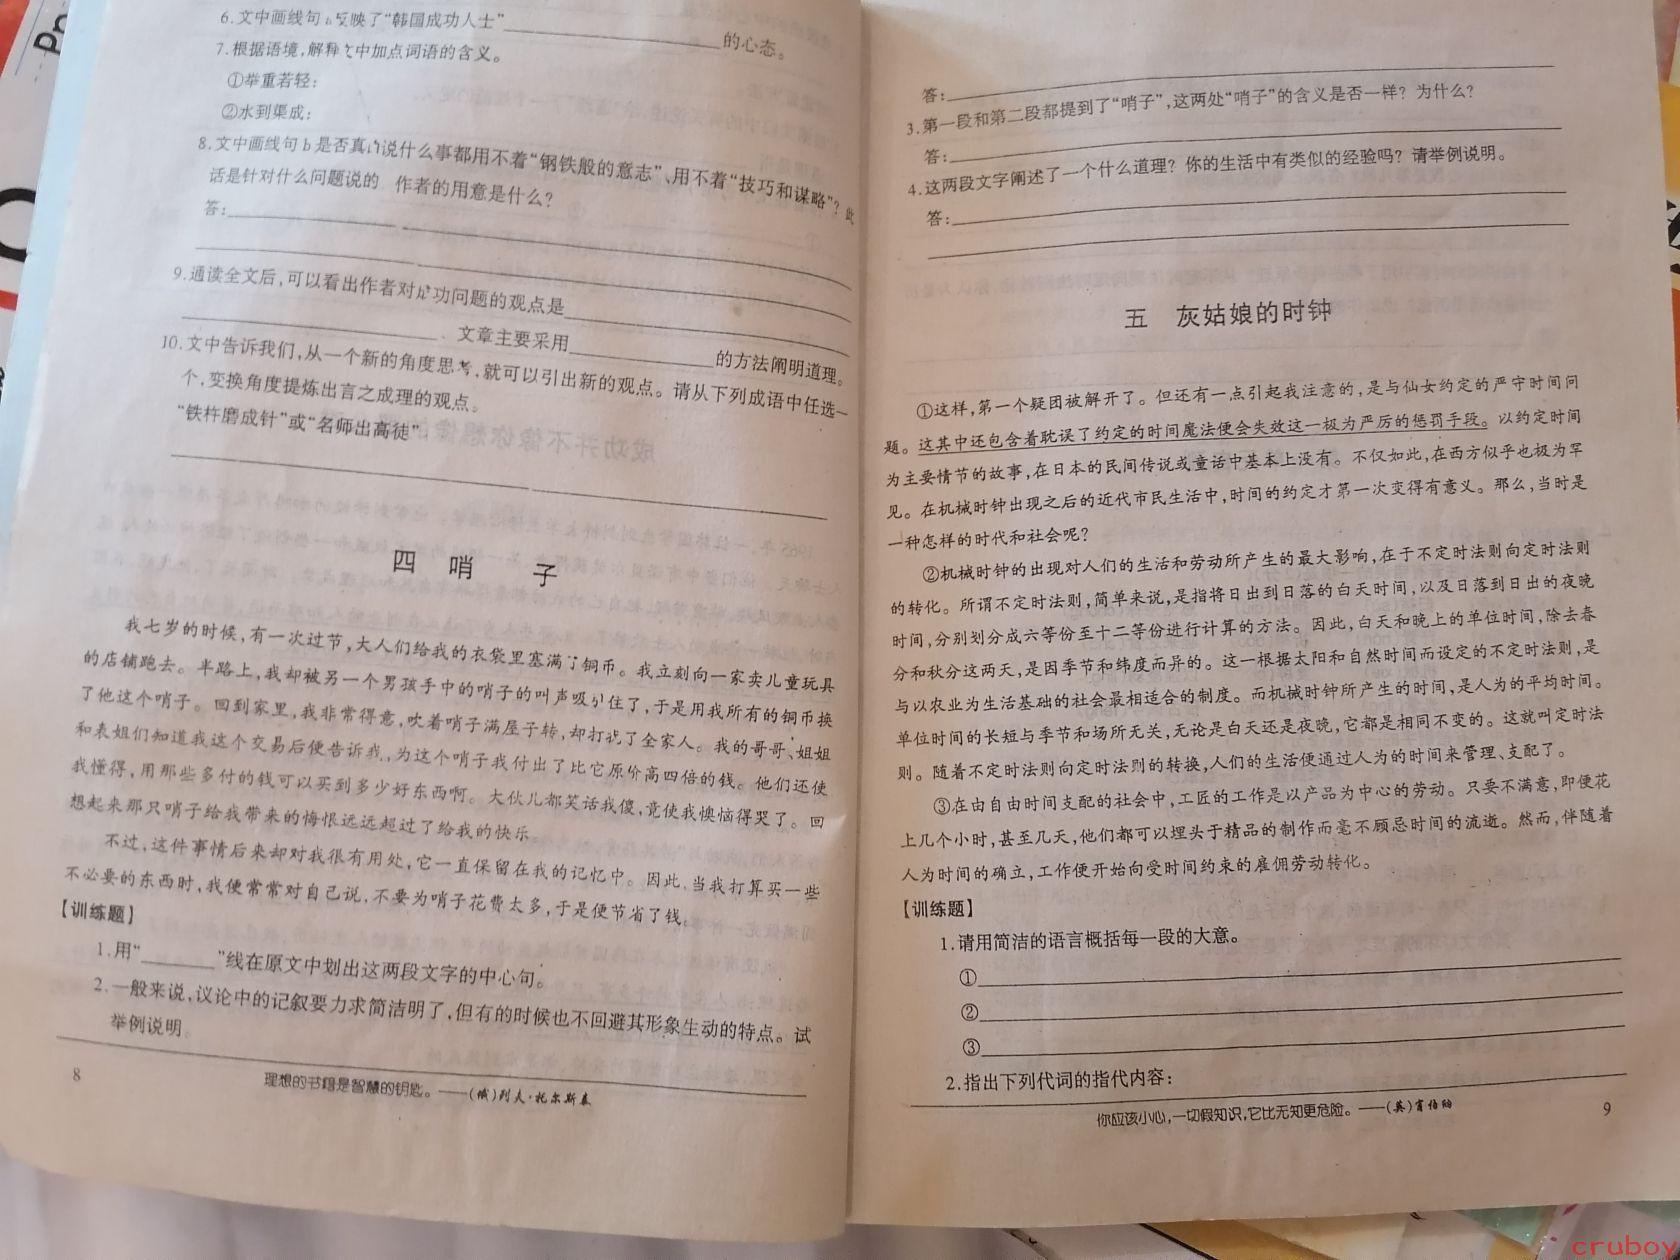 6.文中画线句a反映了“韩国成功人士”____的心态。
7.根据语境,解释文中加点词语的含义。
①举重若轻:
②水到渠成:
8.文中画线句b是否真的说什么事都用不着“钢铁般的意志”、用不着“技巧和谋略”?此
话是针对什么问题说的 作者的用意是什么?
答:
9.通读全文后,可以看出作者对成功问题的观点是
文章主要采用____的方法阐明道理。
10.文中告诉我们,从一个新的角度思考,就可以引出新的观点。请从下列成语中任选一
个,变换角度提炼出言之成理的观点。
“铁杵磨成针”或“名师出高徒”
四 哨 子
我七岁的时候,有一次过节,大人们给我的衣袋里塞满了铜币。我立刻向一家卖儿童玩具
的店铺跑去。半路上,我却被另一个男孩手中的哨子的叫声吸引住了,于是用我所有的铜币换
了他这个哨子。回到家里,我非常得意,吹着哨子满屋子转,却打扰了全家人。我的哥哥、姐姐
和表姐们知道我这个交易后便告诉我,为这个哨子我付出了比它原价高四倍的钱。他们还使
我懂得,用那些多付的钱可以买到多少好东西啊。大伙儿都笑话我傻,竟使我懊恼得哭了。回
想起来那只哨子给我带来的悔恨远远超过了给我的快乐。
不过,这件事情后来却对我很有用处,它一直保留在我的记忆中。因此,当我打算买一些
不必要的东西时,我便常常对自己说,不要为哨子花费太多,于是便节省了钱。
【训练题】
1.用“____”线在原文中划出这两段文字的中心句。
2.一般来说,议论中的记叙要力求简洁明了,但有的时候也不回避其形象生动的特点。试
举例说明。
8
理想的书籍是智慧的钥匙。——(俄)列夫·托尔斯泰
答:
3.第一段和第二段都提到了“哨子”,这两处“哨子”的含义是否一样?为什么?
答:
4.这两段文字阐述了一个什么道理?你的生活中有类似的经验吗?请举例说明。
答:
五 灰姑娘的时钟
①这样,第一个疑团被解开了。但还有一点引起我注意的,是与仙女约定的严守时间问
题。这其中还包含着耽误了约定的时间魔法便会失效这一极为严厉的惩罚手段。以约定时间
为主要情节的故事,在日本的民间传说或童话中基本上没有。不仅如此,在西方似乎也极为罕
见。在机械时钟出现之后的近代市民生活中,时间的约定才第一次变得有意义。那么,当时是
一种怎样的时代和社会呢?
②机械时钟的出现对人们的生活和劳动所产生的最大影响,在于不定时法则向定时法则
的转化。所谓不定时法则,简单来说,是指将日出到日落的白天时间,以及日落到日出的夜晚
时间,分别划分成六等份至十二等份进行计算的方法。因此,白天和晚上的单位时间,除去春
分和秋分这两天,是因季节和纬度而异的。这一根据太阳和自然时间而设定的不定时法则,是
与以农业为生活基础的社会最相适合的制度。而机械时钟所产生的时间,是人为的平均时间。
单位时间的长短与季节和场所无关,无论是白天还是夜晚,它都是相同不变的。这就叫定时法
则。随着不定时法则向定时法则的转换,人们的生活便通过人为的时间来管理、支配了。
③在由自由时间支配的社会中,工匠的工作是以产品为中心的劳动。只要不满意,即便花
上几个小时,甚至几天,他们都可以埋头于精品的制作而毫不顾忌时间的流逝。然而,伴随着
人为时间的确立,工作便开始向受时间约束的雇佣劳动转化。
【训练题】
1.请用简洁的语言概括每一段的大意。
①
②
③
2.指出下列代词的指代内容:
你应该小心,一切假知识,它比无知更危险。——(英)肖伯纳
9
cruboy